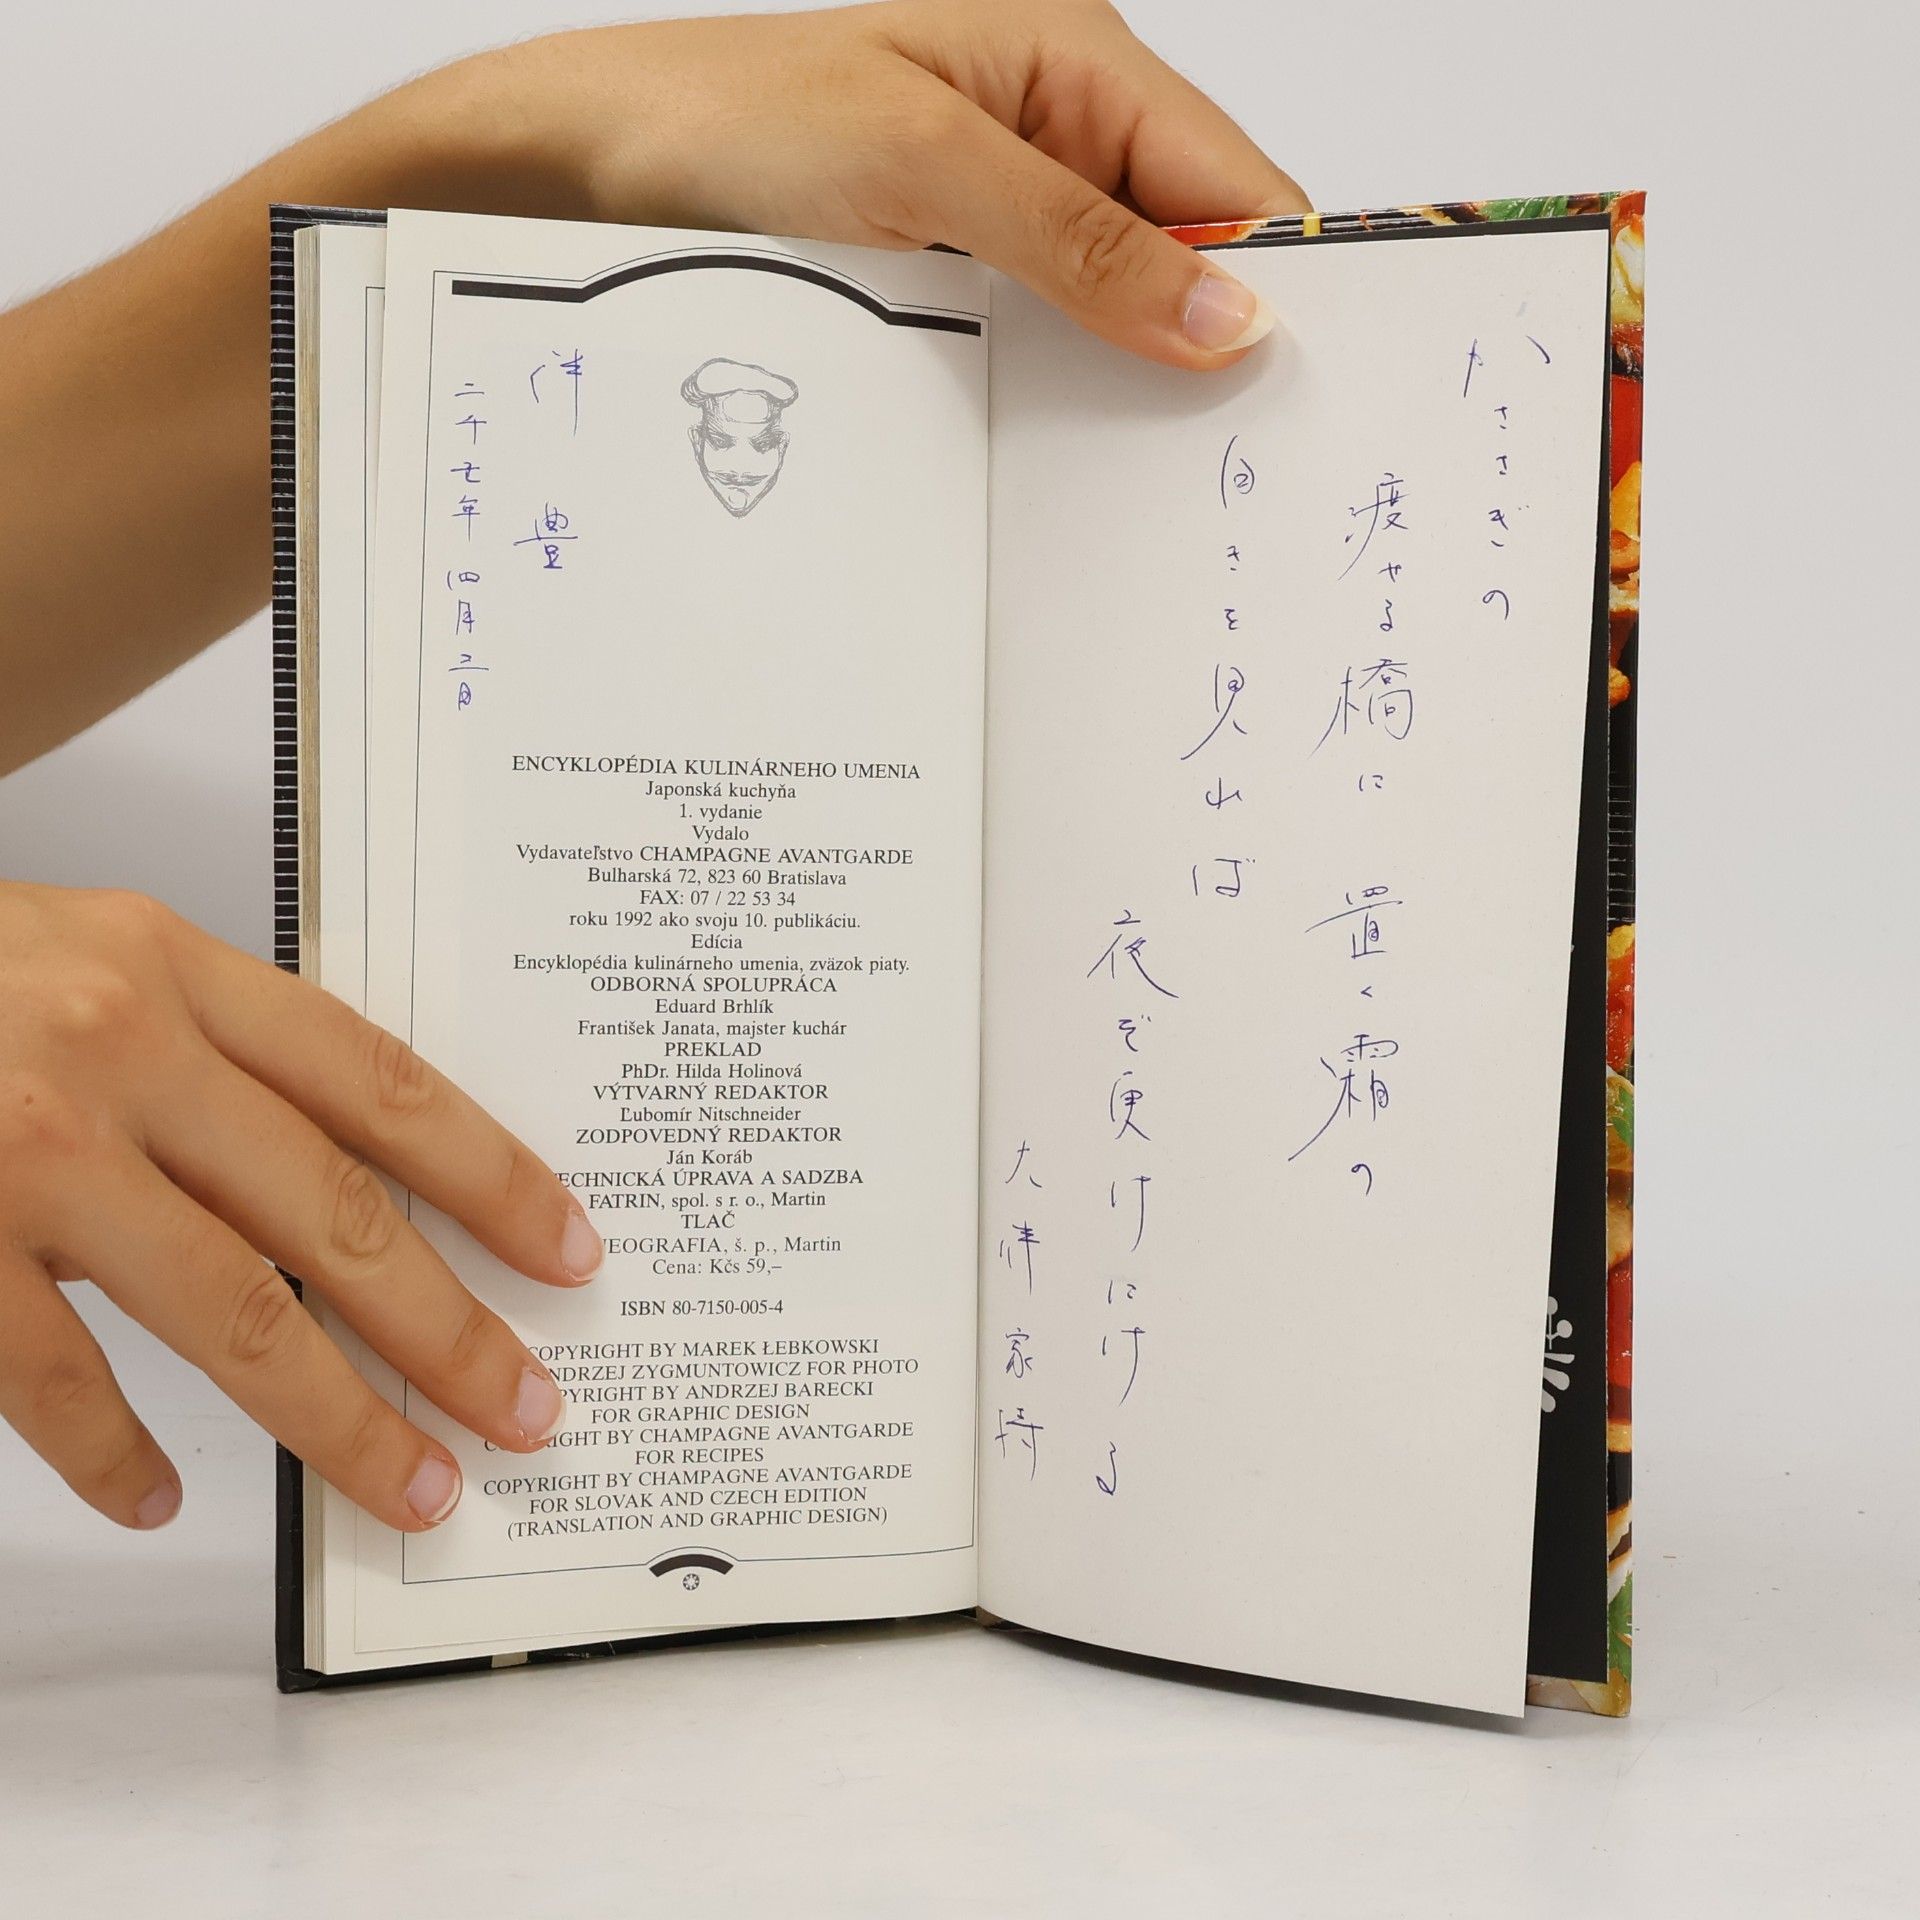 二千七年 四月二日
津 豊
ENCYKLOPÉDIA KULINÁRNEHO UMENIA
Japonská kuchyňa
1. vydanie
Vydalo
Vydavateľstvo CHAMPAGNE AVANTGARDE
Bulharská 72, 823 60 Bratislava
FAX: 07 / 22 53 34
roku 1992 ako svoju 10. publikáciu.
Edícia
Encyklopédia kulinárneho umenia, zväzok piaty.
ODBORNÁ SPOLUPRÁCA
Eduard Brhlík
František Janata, majster kuchár
PREKLAD
PhDr. Hilda Holinová
VÝTVARNÝ REDAKTOR
Ľubomír Nitschneider
ZODPOVEDNÝ REDAKTOR
Ján Koráb
ECHNICKÁ ÚPRAVA A SADZBA
FATRIN, spol. s r. o., Martin
TLAČ
EOGRAFIA, š. p., Martin
Cena: Kčs 59,–
ISBN 80-7150-005-4
COPYRIGHT BY MAREK ŁEBKOWSKI
NDRZEJ ZYGMUNTOWICZ FOR PHOTO
PYRIGHT BY ANDRZEJ BARECKI
FOR GRAPHIC DESIGN
IGHT BY CHAMPAGNE AVANTGARDE
FOR RECIPES
COPYRIGHT BY CHAMPAGNE AVANTGARDE
FOR SLOVAK AND CZECH EDITION
(TRANSLATION AND GRAPHIC DESIGN)
かささぎの
渡せる橋に 置く霜の
白きを見れば
夜ぞ更けにける
大伴家持